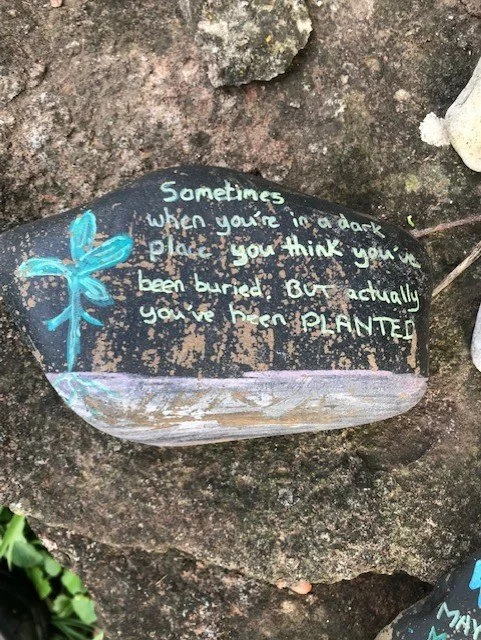 Sometimes
when you're in a dark
place you think you've
been buried. BUT actually
you've been PLANTED
MAY